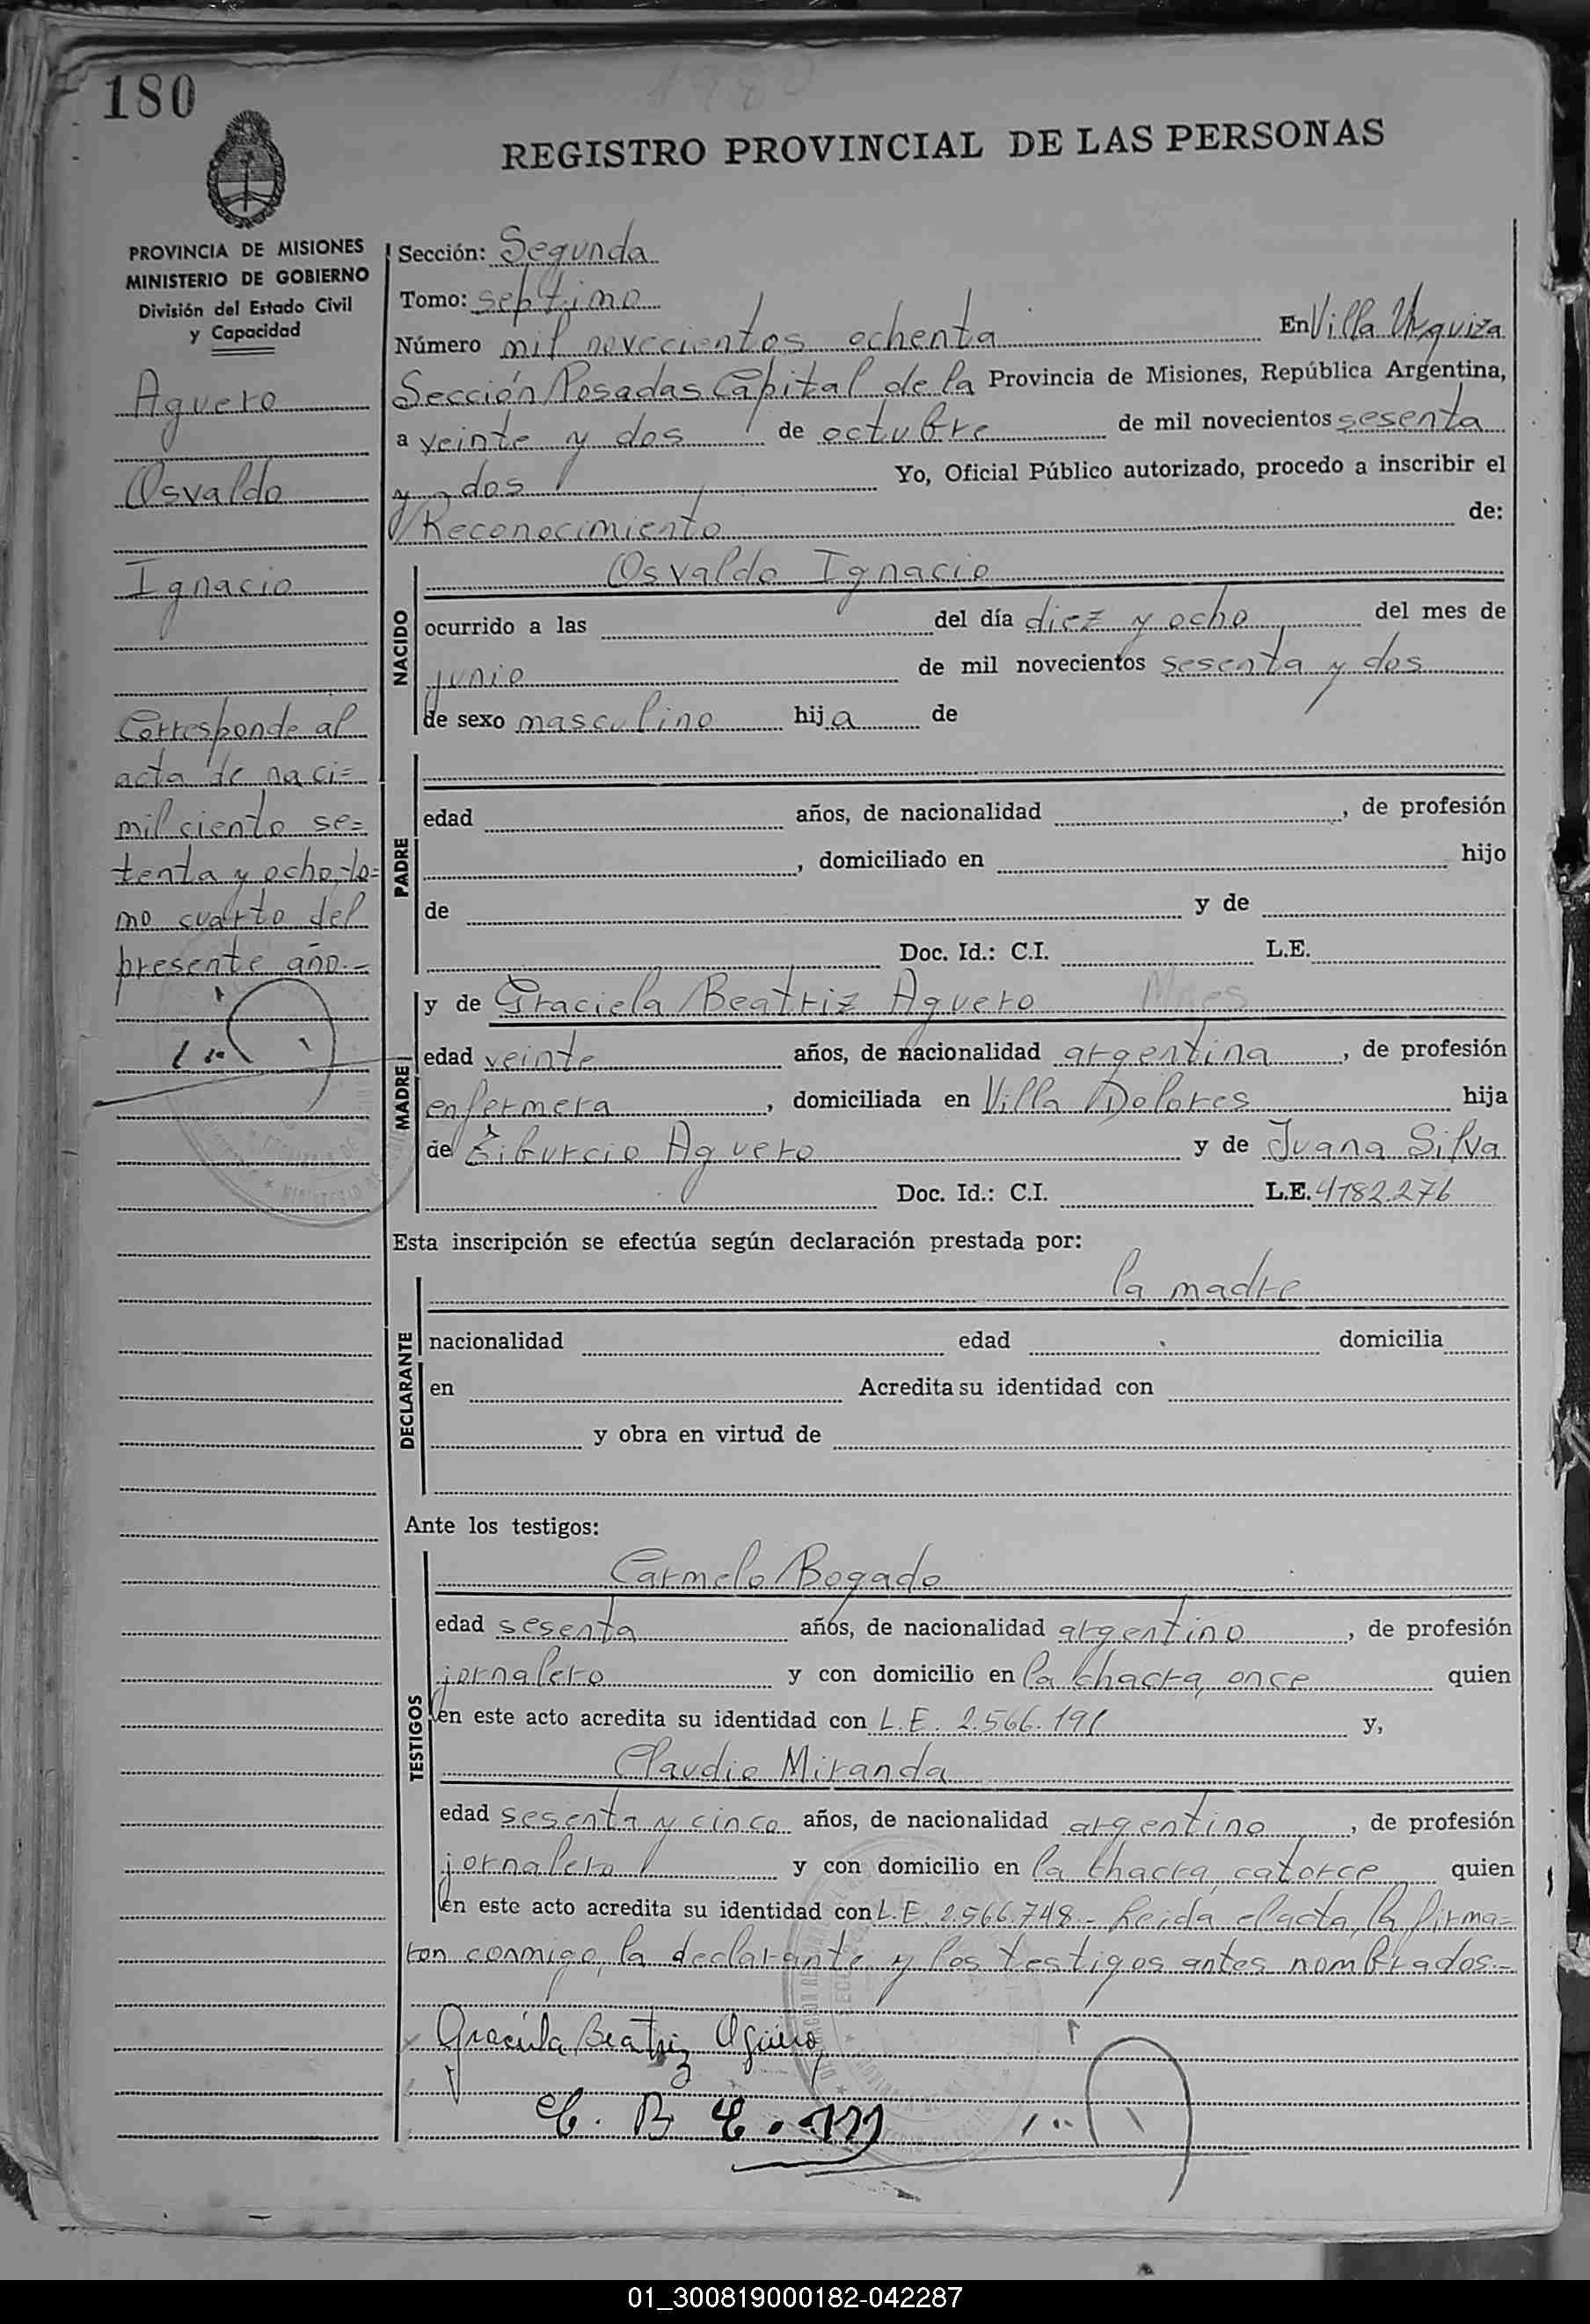 180
1980
REGISTRO PROVINCIAL DE LAS PERSONAS
PROVINCIA DE MISIONES
MINISTERIO DE GOBIERNO
División del Estado Civil
y Capacidad
Aguero
Osvaldo
Ignacio
Corresponde al
acta de naci=
mil ciento se=
tenta y ocho to=
mo cuarto del
presente año.-
Sección: Segunda
Tomo: septimo
Número mil novecientos ochenta En Villa Urquiza
Sección Posadas Capital de la Provincia de Misiones, República Argentina,
a veinte y dos de octubre de mil novecientos sesenta
y dos Yo, Oficial Público autorizado, procedo a inscribir el
Reconocimiento de:
NACIDO
Osvaldo Ignacio
ocurrido a las del día diez y ocho del mes de
junio de mil novecientos sesenta y dos
de sexo masculino hija de
PADRE
edad años, de nacionalidad , de profesión
, domiciliado en hijo
de y de
Doc. Id.: C.I. L.E.
MADRE
y de Graciela Beatriz Aguero
edad veinte años, de nacionalidad argentina, de profesión
enfermera, domiciliada en Villa Dolores hija
de Tiburcio Aguero y de Juana Silva
Doc. Id.: C.I. L.E. 4182.276
Esta inscripción se efectúa según declaración prestada por:
DECLARANTE
la madre
nacionalidad edad domicilia
en Acredita su identidad con
y obra en virtud de
Ante los testigos:
TESTIGOS
Carmelo Bogado
edad sesenta años, de nacionalidad argentino, de profesión
jornalero y con domicilio en la chacra once quien
en este acto acredita su identidad con L.E. 2.566.191 y,
Claudio Miranda
edad sesenta y cinco años, de nacionalidad argentino, de profesión
jornalero y con domicilio en la chacra catorce quien
en este acto acredita su identidad con L.E. 2.566.748.- Leida el acta, la firma=
ron conmigo, la declarante y los testigos antes nombrados.-
Graciela Beatriz Agüero
C. B C. M
01_300819000182-042287